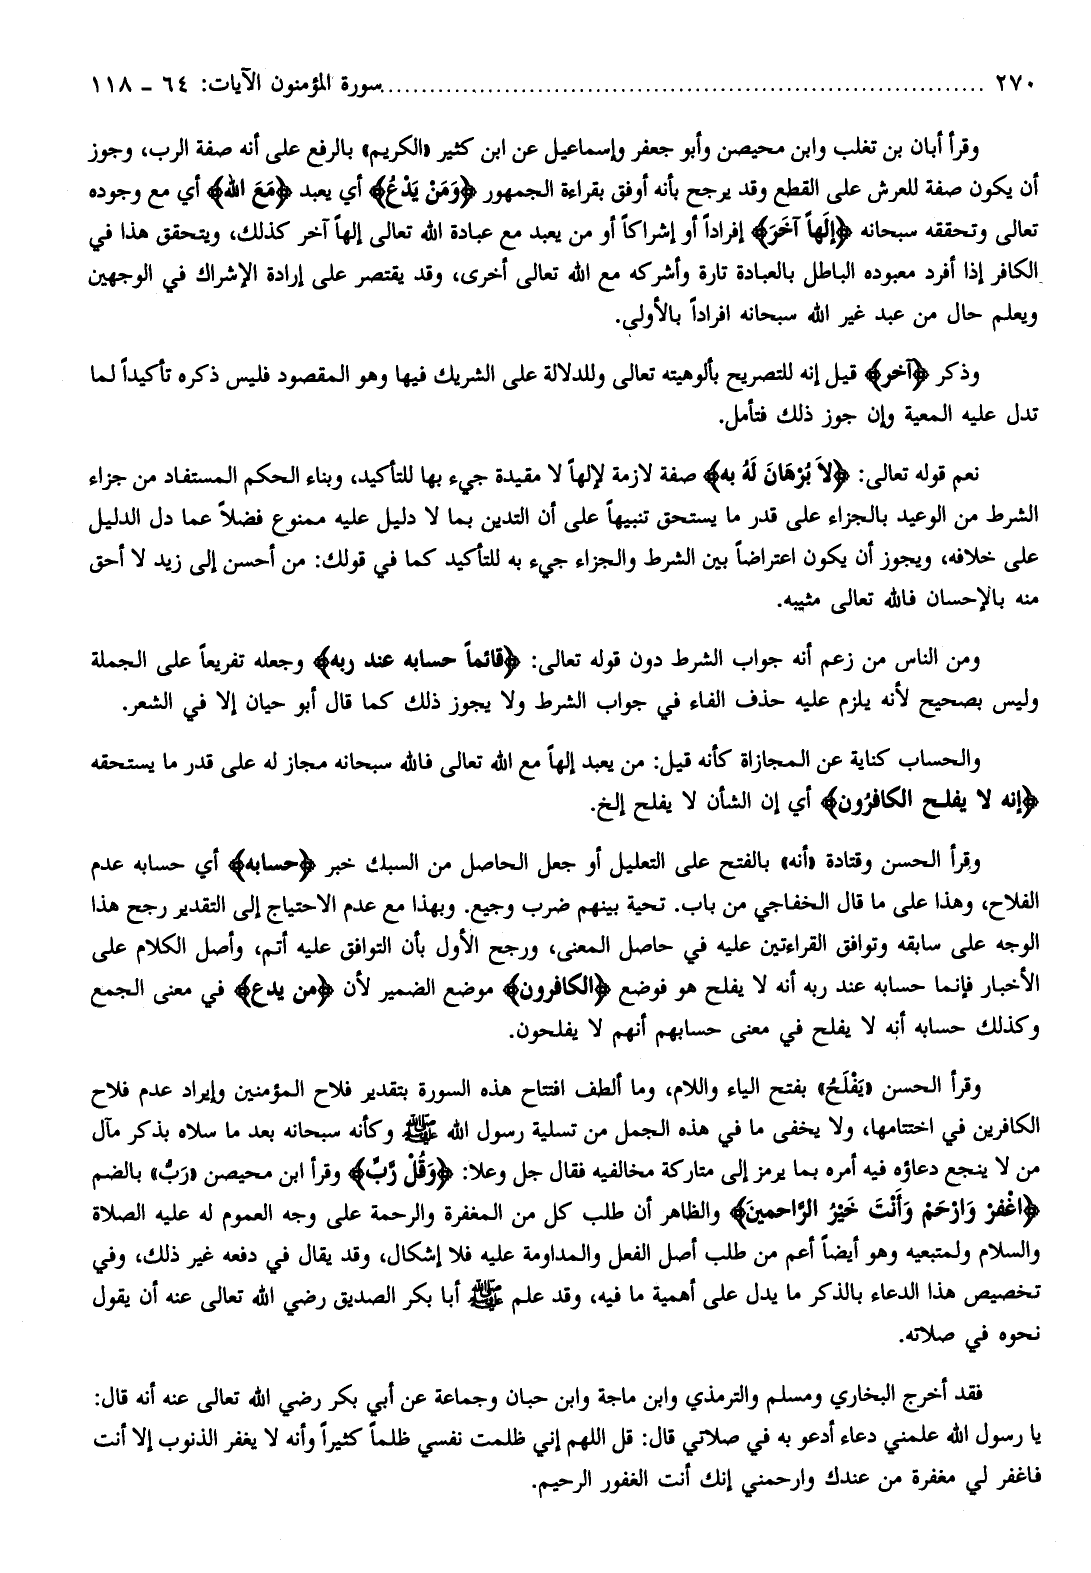 ٢٧٠ ........................................ سورة المؤمنون الآيات: ٦٤ ـ ١١٨
وقرأ أبان بن تغلب وابن محيصن وأبو جعفر وإسماعيل عن ابن كثير «الكريم» بالرفع على أنه صفة الرب، وجوز
أن يكون صفة للعرش على القطع وقد يرجح بأنه أوفق بقراءة الجمهور ﴿وَمَنْ يَدْعُ﴾ أي يعبد ﴿مَعَ الله﴾ أي مع وجوده
تعالى وتحققه سبحانه ﴿إِلَهاً آخَرَ﴾ إفراداً أو إشراكاً أو من يعبد مع عبادة الله تعالى إلهاً آخر كذلك، ويتحقق هذا في
الكافر إذا أفرد معبوده الباطل بالعبادة تارة وأشركه مع الله تعالى أخرى، وقد يقتصر على إرادة الإشراك في الوجهين
ويعلم حال من عبد غير الله سبحانه افراداً بالأولى.
وذكر ﴿آخر﴾ قيل إنه للتصريح بألوهيته تعالى وللدلالة على الشريك فيها وهو المقصود فليس ذكره تأكيداً لما
تدل عليه المعية وإن جوز ذلك فتأمل.
نعم قوله تعالى: ﴿لاَ بُرْهَانَ لَهُ به﴾ صفة لازمة لإلهاً لا مقيدة جيء بها للتأكيد، وبناء الحكم المستفاد من جزاء
الشرط من الوعيد بالجزاء على قدر ما يستحق تنبيهاً على أن التدين بما لا دليل عليه ممنوع فضلاً عما دل الدليل
على خلافه، ويجوز أن يكون اعتراضاً بين الشرط والجزاء جيء به للتأكيد كما في قولك: من أحسن إلى زيد لا أحق
منه بالإحسان فالله تعالى مثيبه.
ومن الناس من زعم أنه جواب الشرط دون قوله تعالى: ﴿فإنما حسابه عند ربه﴾ وجعله تفريعاً على الجملة
وليس بصحيح لأنه يلزم عليه حذف الفاء في جواب الشرط ولا يجوز ذلك كما قال أبو حيان إلا في الشعر.
والحساب كناية عن المجازاة كأنه قيل: من يعبد إلهاً مع الله تعالى فالله سبحانه مجاز له على قدر ما يستحقه
﴿إنه لا يفلح الكافرُون﴾ أي إن الشأن لا يفلح إلخ.
وقرأ الحسن وقتادة «أنه» بالفتح على التعليل أو جعل الحاصل من السبك خبر ﴿حسابه﴾ أي حسابه عدم
الفلاح، وهذا على ما قال الخفاجي من باب. تحية بينهم ضرب وجيع. وبهذا مع عدم الاحتياج إلى التقدير رجح هذا
الوجه على سابقه وتوافق القراءتين عليه في حاصل المعنى، ورجح الأول بأن التوافق عليه أتم، وأصل الكلام على
الأخبار فإنما حسابه عند ربه أنه لا يفلح هو فوضع ﴿الكافرون﴾ موضع الضمير لأن ﴿من يدع﴾ في معنى الجمع
وكذلك حسابه أنه لا يفلح في معنى حسابهم أنهم لا يفلحون.
وقرأ الحسن «يَفْلَحُ» بفتح الياء واللام، وما ألطف افتتاح هذه السورة بتقدير فلاح المؤمنين وإيراد عدم فلاح
الكافرين في اختتامها، ولا يخفى ما في هذه الجمل من تسلية رسول الله ﷺ وكأنه سبحانه بعد ما سلاه بذكر مآل
من لا ينجع دعاؤه فيه أمره بما يرمز إلى متاركة مخالفيه فقال جل وعلا: ﴿وَقُلْ رَّبِّ﴾ وقرأ ابن محيصن «رَبُّ» بالضم
﴿اغْفرْ وَارْحَمْ وَأَنْتَ خَيْرُ الرَّاحمينَ﴾ والظاهر أن طلب كل من المغفرة والرحمة على وجه العموم له عليه الصلاة
والسلام ولمتبعيه وهو أيضاً أعم من طلب أصل الفعل والمداومة عليه فلا إشكال، وقد يقال في دفعه غير ذلك، وفي
تخصيص هذا الدعاء بالذكر ما يدل على أهمية ما فيه، وقد علم ﷺ أبا بكر الصديق رضي الله تعالى عنه أن يقول
نحوه في صلاته.
فقد أخرج البخاري ومسلم والترمذي وابن ماجة وابن حبان وجماعة عن أبي بكر رضي الله تعالى عنه أنه قال:
يا رسول الله علمني دعاء أدعو به في صلاتي قال: قل اللهم إني ظلمت نفسي ظلماً كثيراً وأنه لا يغفر الذنوب إلا أنت
فاغفر لي مغفرة من عندك وارحمني إنك أنت الغفور الرحيم.